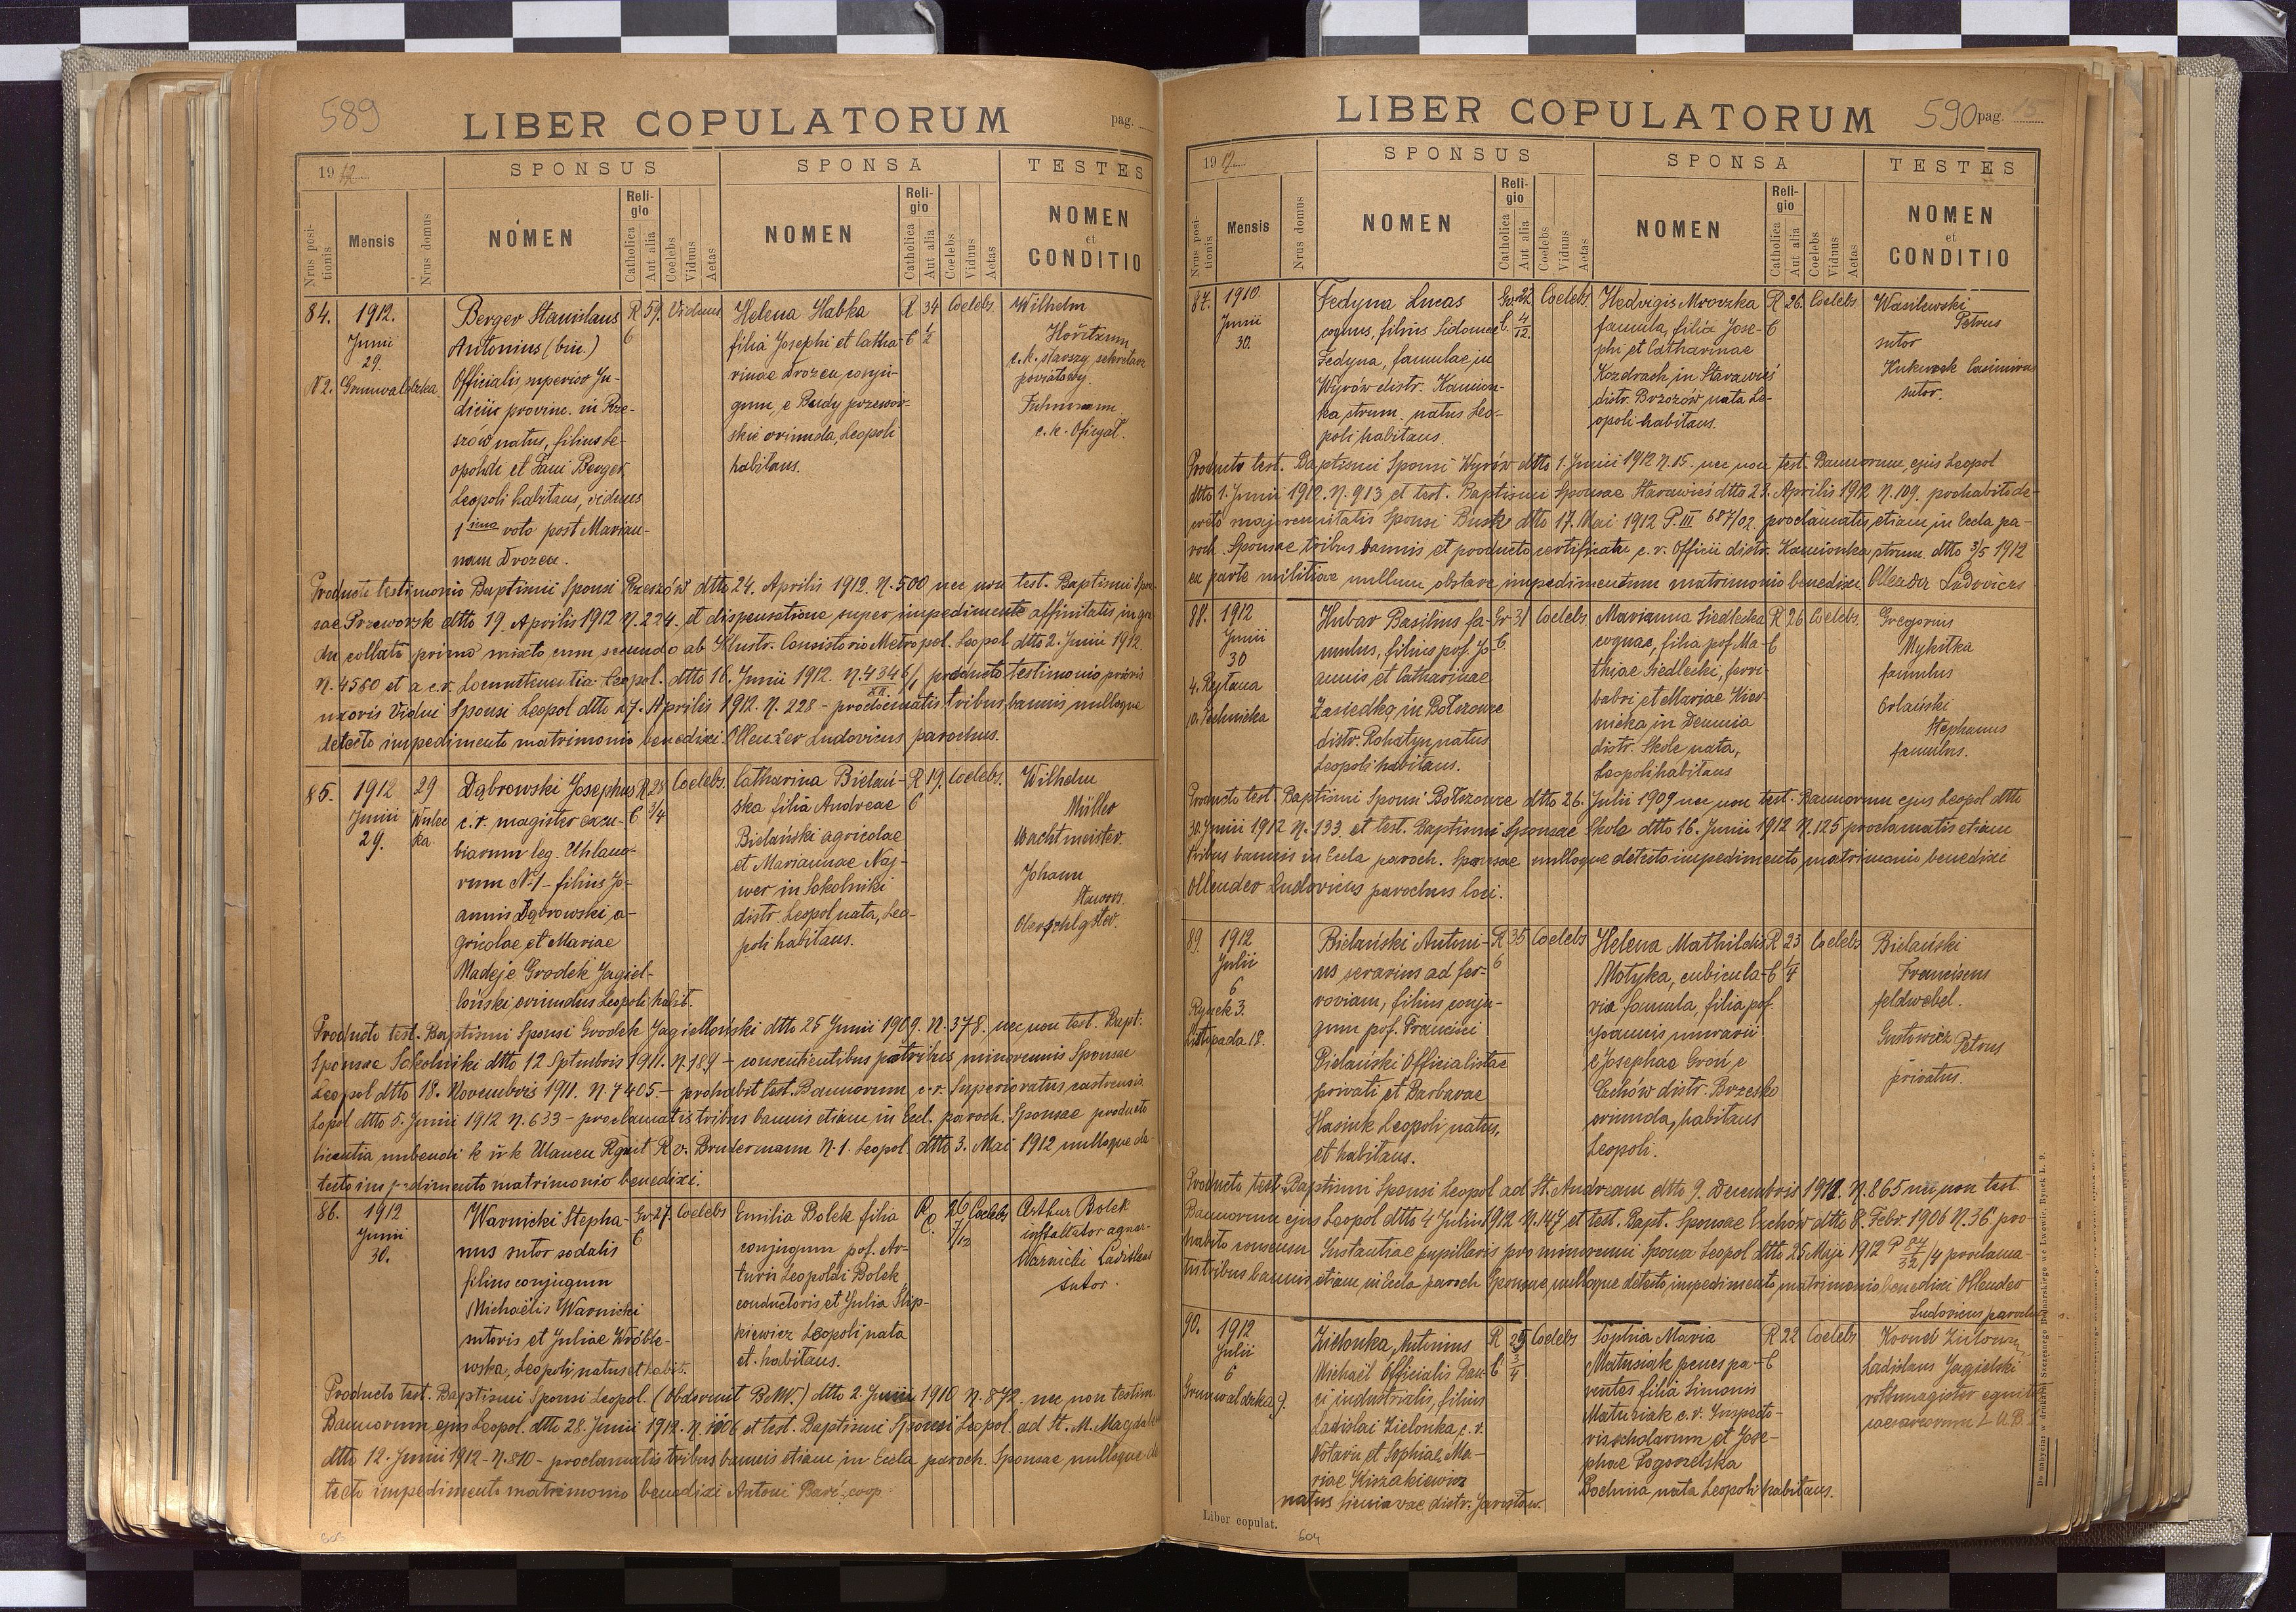 589
LIBER COPULATORUM
pag.
1912
SPONSUS
SPONSA
TESTES
Nrus positionis
Mensis
Nrus domus
NOMEN
Religio
Catholica
Aut alia
Coelebs
Viduus
Aetas
NOMEN
Religio
Catholica
Aut alia
Coelebs
Viduus
Aetas
NOMEN
et
CONDITIO
84.
1912.
Junii
29.
N2. Grunwaldzka
Berger Stanislaus
Antonius (bin.)
Officialis superior Ju-
dicii provinc. in Rze-
szów natus, filius Le-
opoldi et Fani Berger
Leopoli habitans, viduus
1 imo voto post Marian-
nam Drozen.
R 59. Viduus
C
Helena Habka
filia Josephi et Catha-
rinae Drozen, conju-
gum, e Budy przewor-
skie oriunda, Leopoli
habitans.
R 34 Coelebs.
C 1/2
Wilhelm
Hořitzum
c.k. starszy sekretarz
powiatowy.
Fuhrmann
c.k. Oficyał.
Producto testimonio Baptismi Sponsi Rzeszów dtto 24. Aprilis 1912. N. 500 nec non test. Baptismi Spon-
sae Przeworsk dtto 19. Aprilis 1912 N. 224. et dispensatione super impedimento affinitatis in gra-
du collato primo mixto cum secundo ab Illustr. Consistorio Metropol. Leopol. dtto 2. Junii 1912.
N. 4580 et a c.r. Locumtenentia Leopol. dtto 16. Junii 1912. N. 4346/1 XII. producto testimonio prioris
uxoris Vidui Sponsi Leopol dtto 27. Aprilis 1912. N. 228 - proclamatis tribus bannis, nulloque
detecto impedimento matrimonio benedixi Ollender Ludovicus parochus.
85.
1912
Junii
29.
29
Wulec
ka
Dąbrowski Josephus
c.r. magister excu-
biarum leg. Uhlano-
rum N. 1 - filius Jo-
annis Dąbrowski, a-
gricolae, et Mariae
Madeje Grodek Jagiel-
loński oriundus Leopoli habit.
R 28 Coelebs.
C 3/4
Catharina Bielań-
ska filia Andreae
Bielański agricolae
et Mariannae Naj-
wer in Sokolniki
distr. Leopol nata, Leo-
poli habitans.
R 19. Coelebs.
C
Wilhelm
Müller
Wachtmeister.
Johann
Producto test. Baptismi Sponsi Grodek Jagielloński dtto 25 Junii 1909. N. 378. nec non test. Bapt.
Sponsae Sokolniki dtto 12 Sptembris 1911. N. 189 - consentientibus patribus minorennis Sponsae
Leopol dtto 18. Novembris 1911. N. 7405. - prohabit test. Bannorum c.r. Superioratus castrensis
Lopol dtto 5. Junii 1912 N. 633 - proclamatis tribus bannis etiam in Eccl. paroch. Sponsae producto
licentia nubendi k ü k Ulanen Rgmt R v. Brudermann N. 1. Leopol. dtto 3. Mai 1912 nulloque de-
tecto impedimento matrimonio benedixi.
86.
1912
Junii
30.
Warnicki Stepha-
nus sutor sodalis
filius conjugum
Michaëlis Warnicki
sutoris et Juliae Wróble-
wska, Leopoli natus et habit.
Gr. 27. Coelebs
C
Emilia Bolek filia
conjugum pof. Ar-
turis Leopoldi Bolek
conductoris et Julia Slip-
kiewicz Leopoli nata
et habitans.
R. 26 Coelebs
C. 7/12
Arthur Bolek
installator aquar-
Warnicki Ladislaus
sutor.
Producto test. Baptismi Sponsi Leopol. (Obdormit B.M.V.) dtto 2. Junii 1910 N. 872. nec non testim.
Bannorum ejus Leopol. dtto 28. Junii 1912. N. 1006 et test. Baptismi Sponsi Leopol. ad St. M. Magdale
dtto 12. Junii 1912 - N. 810 - proclamatis tribus bannis etiam in Eccla paroch. Sponsae nulloque de
tecto impedimento matrimonio benedixi Antoni coop
LIBER COPULATORUM
590 pag. 15
1912
SPONSUS
SPONSA
TESTES
Nrus positionis
Mensis
Nrus domus
NOMEN
Religio
Catholica
Aut alia
Coelebs
Viduus
Aetas
NOMEN
Religio
Catholica
Aut alia
Coelebs
Viduus
Aetas
NOMEN
et
CONDITIO
87.
1910.
Junii
30.
Fedyna Lucas
coquus, filius Sidoniae
Fedyna, famulae, in
Wyrów distr. Kamion-
ka strum. natus Leo-
poli habitans.
Gr. 22 Coelebs
C. 4/12.
Hedvigis Mroczka
famula, filia Jose-
phi et Catharinae
Kozdrach, in Starawieś
distr. Brzozów nata Le-
opoli habitans.
R 26. Coelebs.
C
Wasilewski
Petrus
sutor
Casimirus
sutor.
Producto test. Baptismi Sponsi Wyrów dtto 1. Junii 1912 N. 15. nec non test. Bannorum ejus Leopol
dtto 1. Junii 1912. N. 913 et test. Baptismi Sponsae Starawieś dtto 23. Aprilis 1912 N. 109. prohabito de-
creto majorennitatis Sponsi Busk dtto 17. Mai 1912 P. III 687/02 proclamatis etiam in Eccla pa-
roch. Sponsae tribus bannis et producto certificatu c.r. Officii distr. Kamionka strum. dtto 3/5 1912
ex parte militiae nullum obstare impedimentum matrimonio benedixi Ollender Ludovicus
88.
1912
Junii
30
4. Rejtana
10. Technicka
Hubar Basilius fa-
mulus, filius pof. Jo-
annis et Catharinae
Zasiedką in Bołszowce
distr. Rohatyn, natus
Leopoli habitans.
Gr 31 Coelebs
C
Marianna Siedlecka
coquae, filia pof. Ma-
thiae Siedlecki, ferri-
babri et Mariae Kier-
nicka in Demnia
distr. Skole nata,
Leopoli habitans
R 26 Coelebs.
C
Gregorius
Mykitka
famulus
Orlański
Stephanus
famulus.
Producto test. Baptismi Sponsi Bołszowce dtto 26. Julii 1909 nec non test. Bannorum ejus Leopol dtto
30. Junii 1912 N. 133. et test. Baptismi Sponsae Skole dtto 16. Junii 1912 N. 125 proclamatis etiam
tribus bannis in Eccla paroch. Sponsae nulloque detecto impedimento matrimonio benedixi
Ollender Ludovicus parochus loci.
89.
1912
Julii
6
Rynek 3.
Listopada 18.
Bielański Antoni-
us serarius ad fer-
roviam, filius conju-
gum pof. Francisci
Bielański Officialistae
privati et Barbarae
Hasiuk Leopoli natus,
et habitans.
R 35 Coelebs
C
Helena Mathildis
Motyka, cubicula-
ria famula, filia pof.
Joannis murarii
e Josephae Groń, e
Czchów distr. Brzesko
oriunda, habitans
Leopoli.
R 23 Coelebs
C 1/4
Bielański
Franciscus
feldwebel.
Gustowicz Petrus
privatus.
Producto test. Baptismi Sponsi Leopol ad St. Andream dtto 9. Decembris 1911. N. 865 nec non test.
Bannorum ejus Leopol dtto 4 Julii 1912 N. 147 et test. Bapt. Sponsae Czchów dtto 8. Febr. 1906 N. 36. pro-
habito consensu Instantiae pupillaris pro minorenni Sponsa Leopol dtto 25 Maji 1912 proclama-
tis tribus bannis etiam in Eccla paroch Sponsae nulloque detecto impedimento matrimonio benedixi Ollender
Ludovicus parochus
90.
1912
Julii
6
Grunwaldzka 9.
Zielonka Antonius
Michaël Officialis Ban-
ci industrialis, filius
Ladislai Zielonka, c.r.
Notarii et Sophiae Ma-
riae Kirzakiewicz
natus Sieniavae distr. Jarosław.
R Coelebs
C
Sophia Maria
Matusiak penes pa-
rentes filia Simonis
Matusiak c.r. Inspecto-
ris scholarum et Jose-
phae Pogorzelska
Bochnia nata Leopoli habitans.
R 22 Coelebs
C
Kornel
Ladislaus Jagielski
rottmagister
Liber copulat.
604